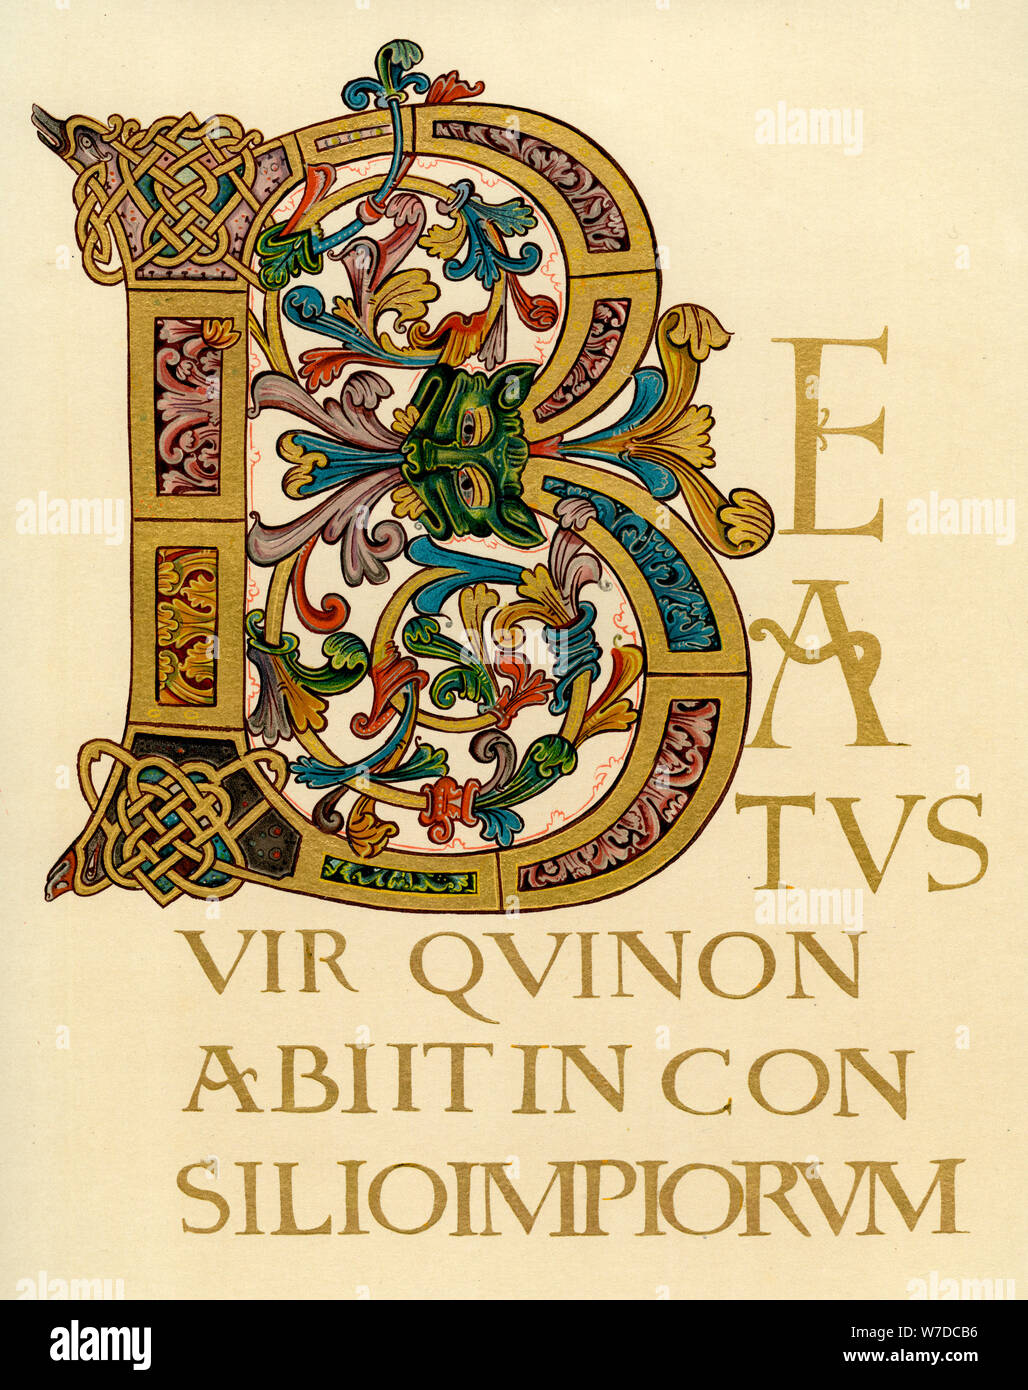 B E
A
TVS
VIR QVINON
ABIIT IN CON
SILIOIMPIORVM
alamy
alamy
alamy
alamy
alamy
alamy
a
a
a
a
alamy
Image ID: W7DCB6
www.alamy.com